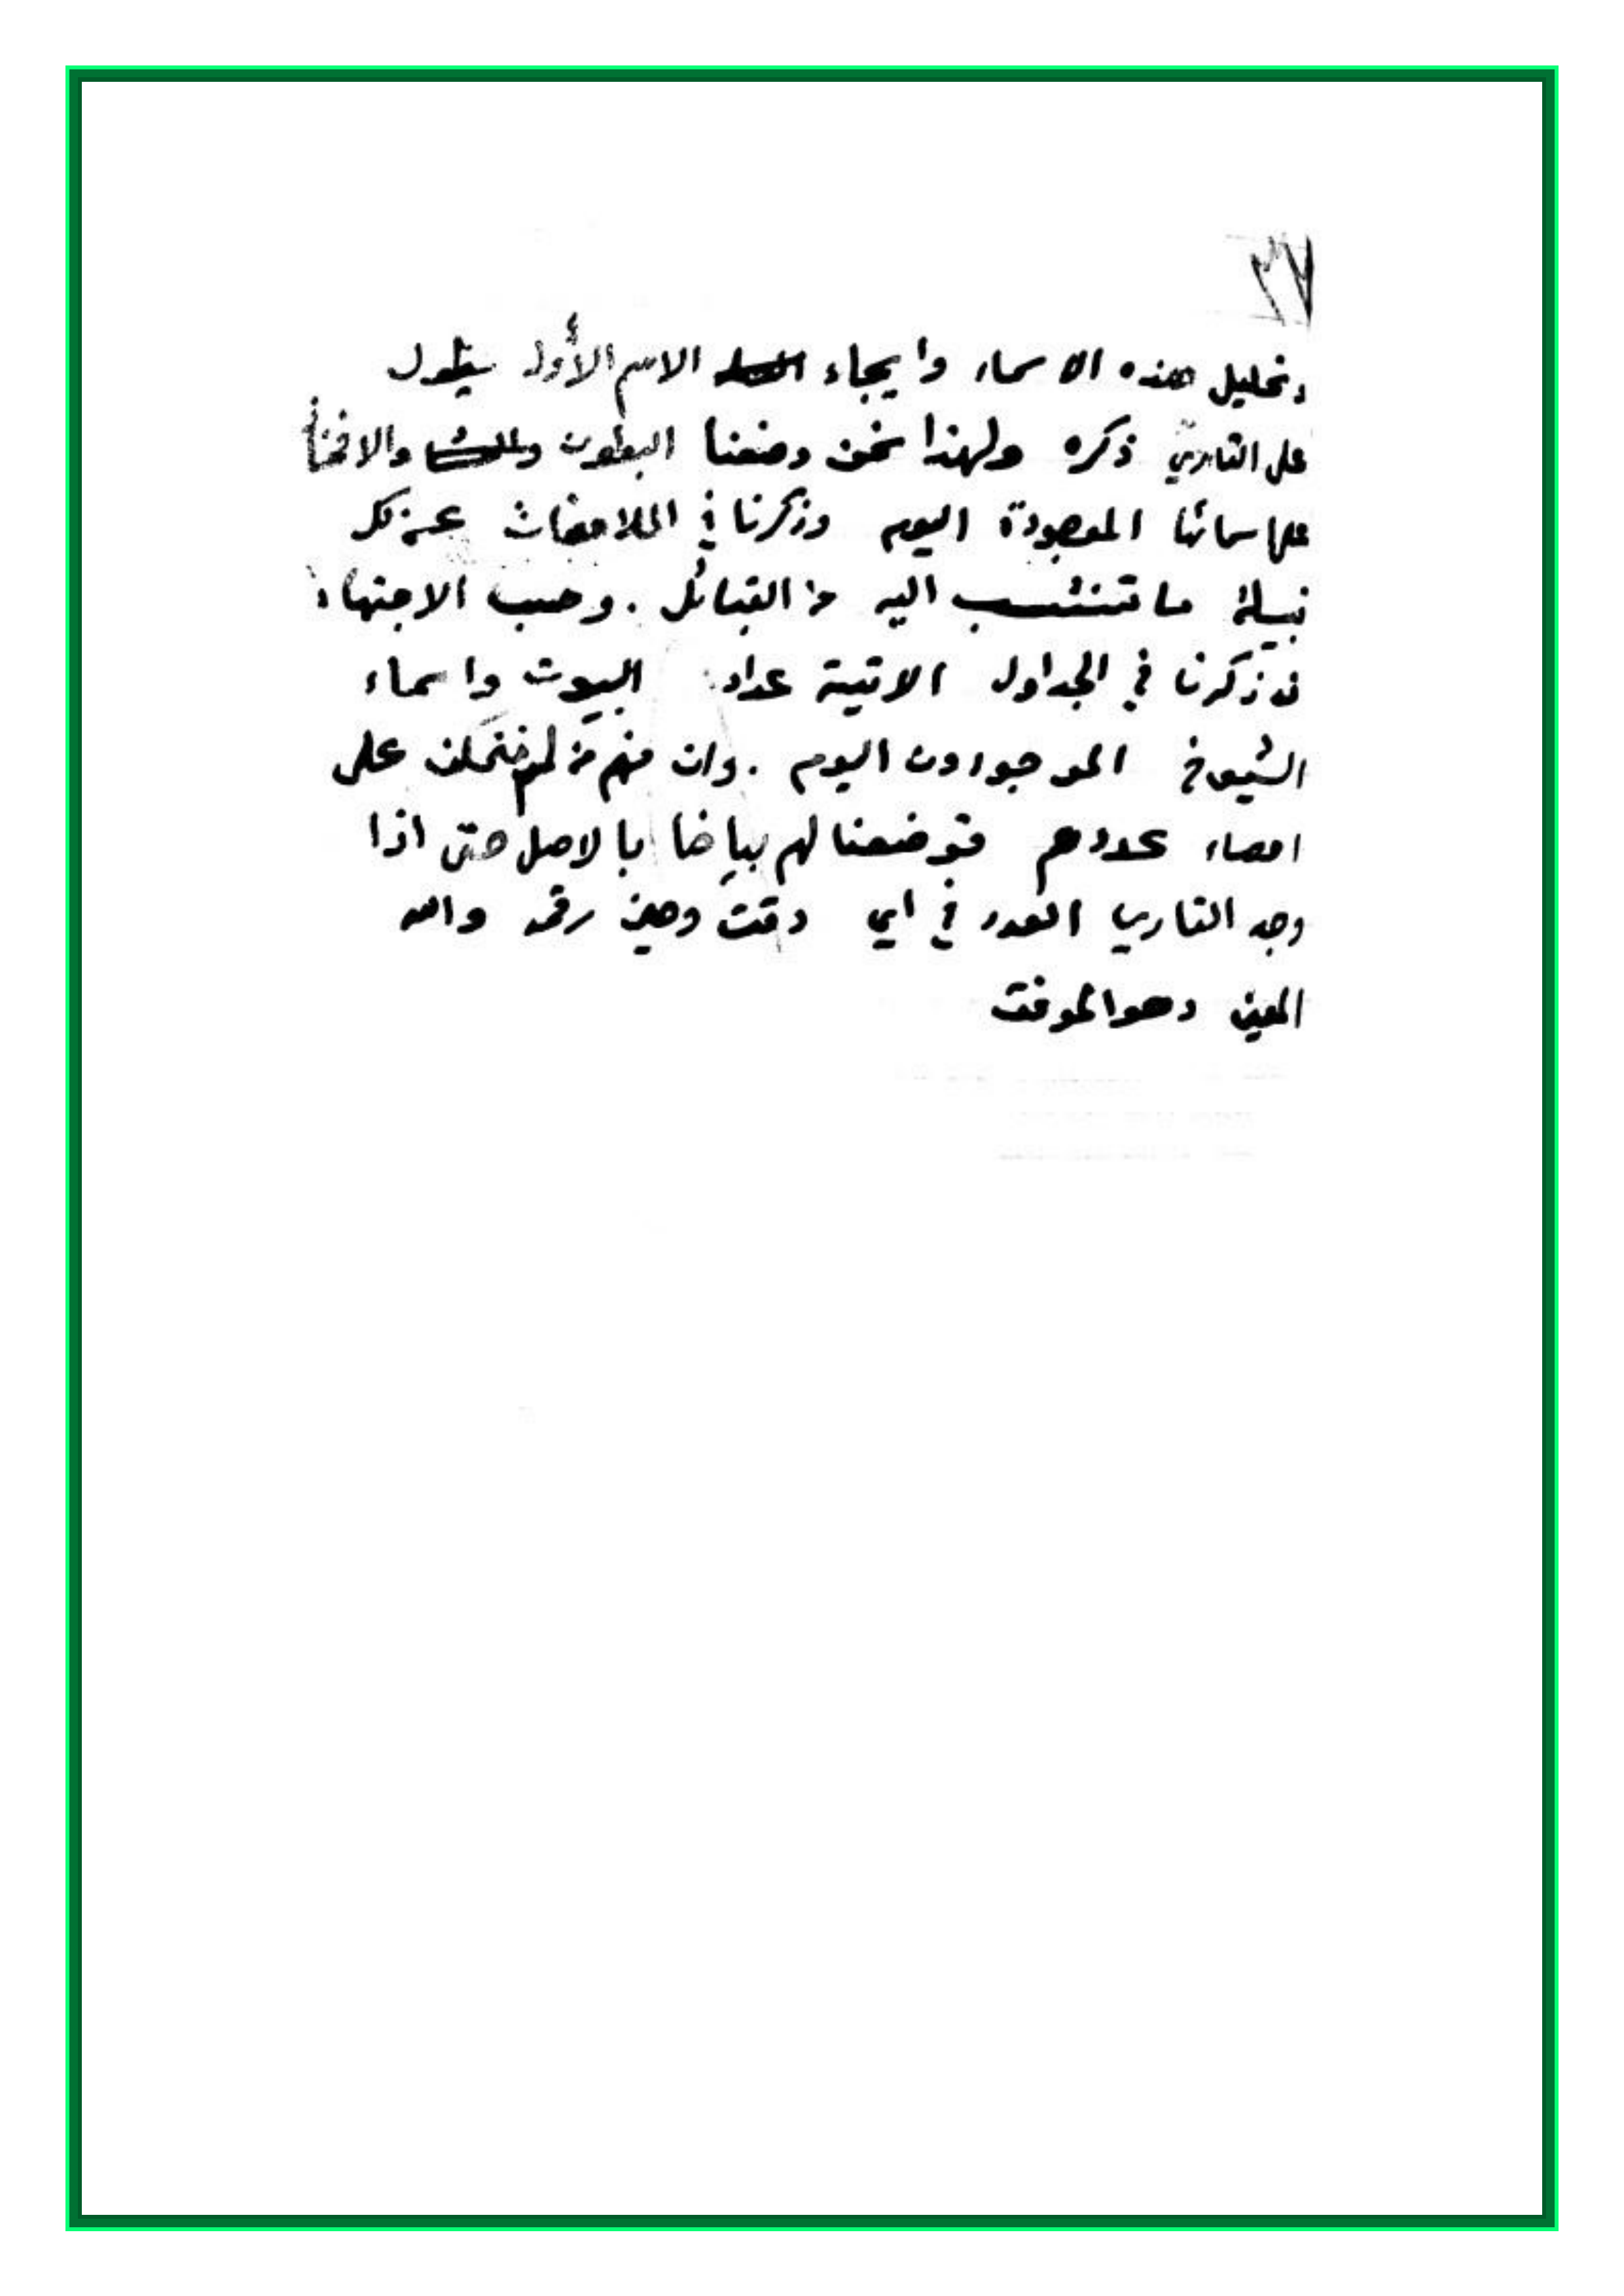 وتحليل هذه الاسماء وايجاء الاسم الأول يطول
على القاري ذكره ولهذا نحن وضعنا البطون والافخاذ
على اسمائها الموجودة اليوم وذكرنا في الملاحضات عن كل
قبيلة ما تنتسب اليه من القبائل . وحسب الاجتهاد
قد ذكرنا في الجداول الاتية عداد البيوت واسماء
الشيوخ الموجودون اليوم . وان منهم من لم نتمكن على
احصاء عددهم فوضعنا لهم بياضا بالاصل حتى اذا
وجد القاري العدد في اي وقت وحين رقمه والله
المعين وهو الموفق